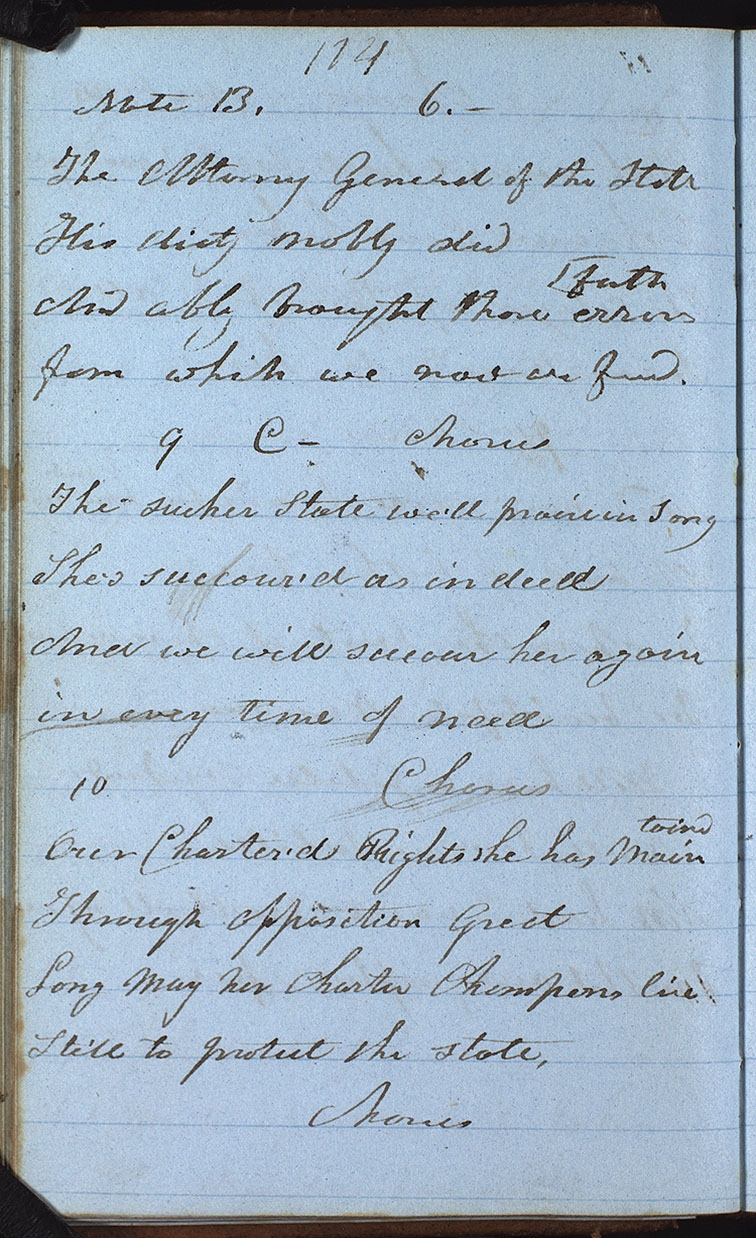 114
Note B. 6.—
The Attorney General of the State
His duty nobly did
And ably brought those errors forth
from which we now are freed.
9 C — Chorus
The sucker State we'll praise in Song
She's succour'd us in deed
And we will succour her again
in every time of need
10 Chorus
Our Charter'd Rights she has Main tained
Through opposition Great
Long May her Charter Champions live
Still to protect the state,
Chorus